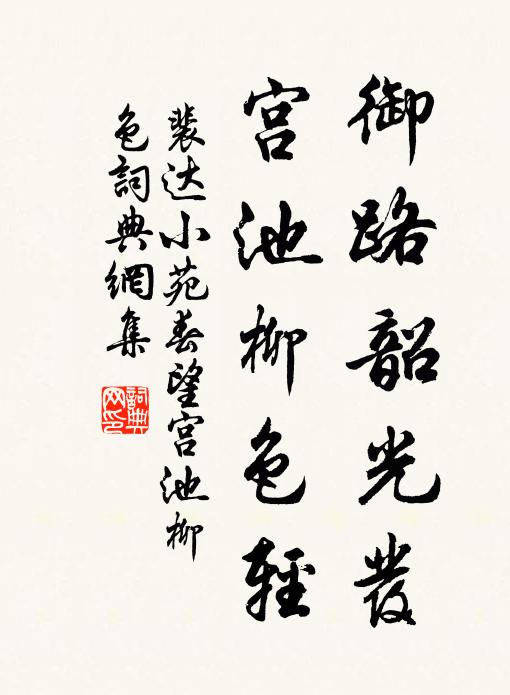 御路韶光發
宮池柳色輕
裴达小苑春望宮池柳
色詞典網集
詞典网印